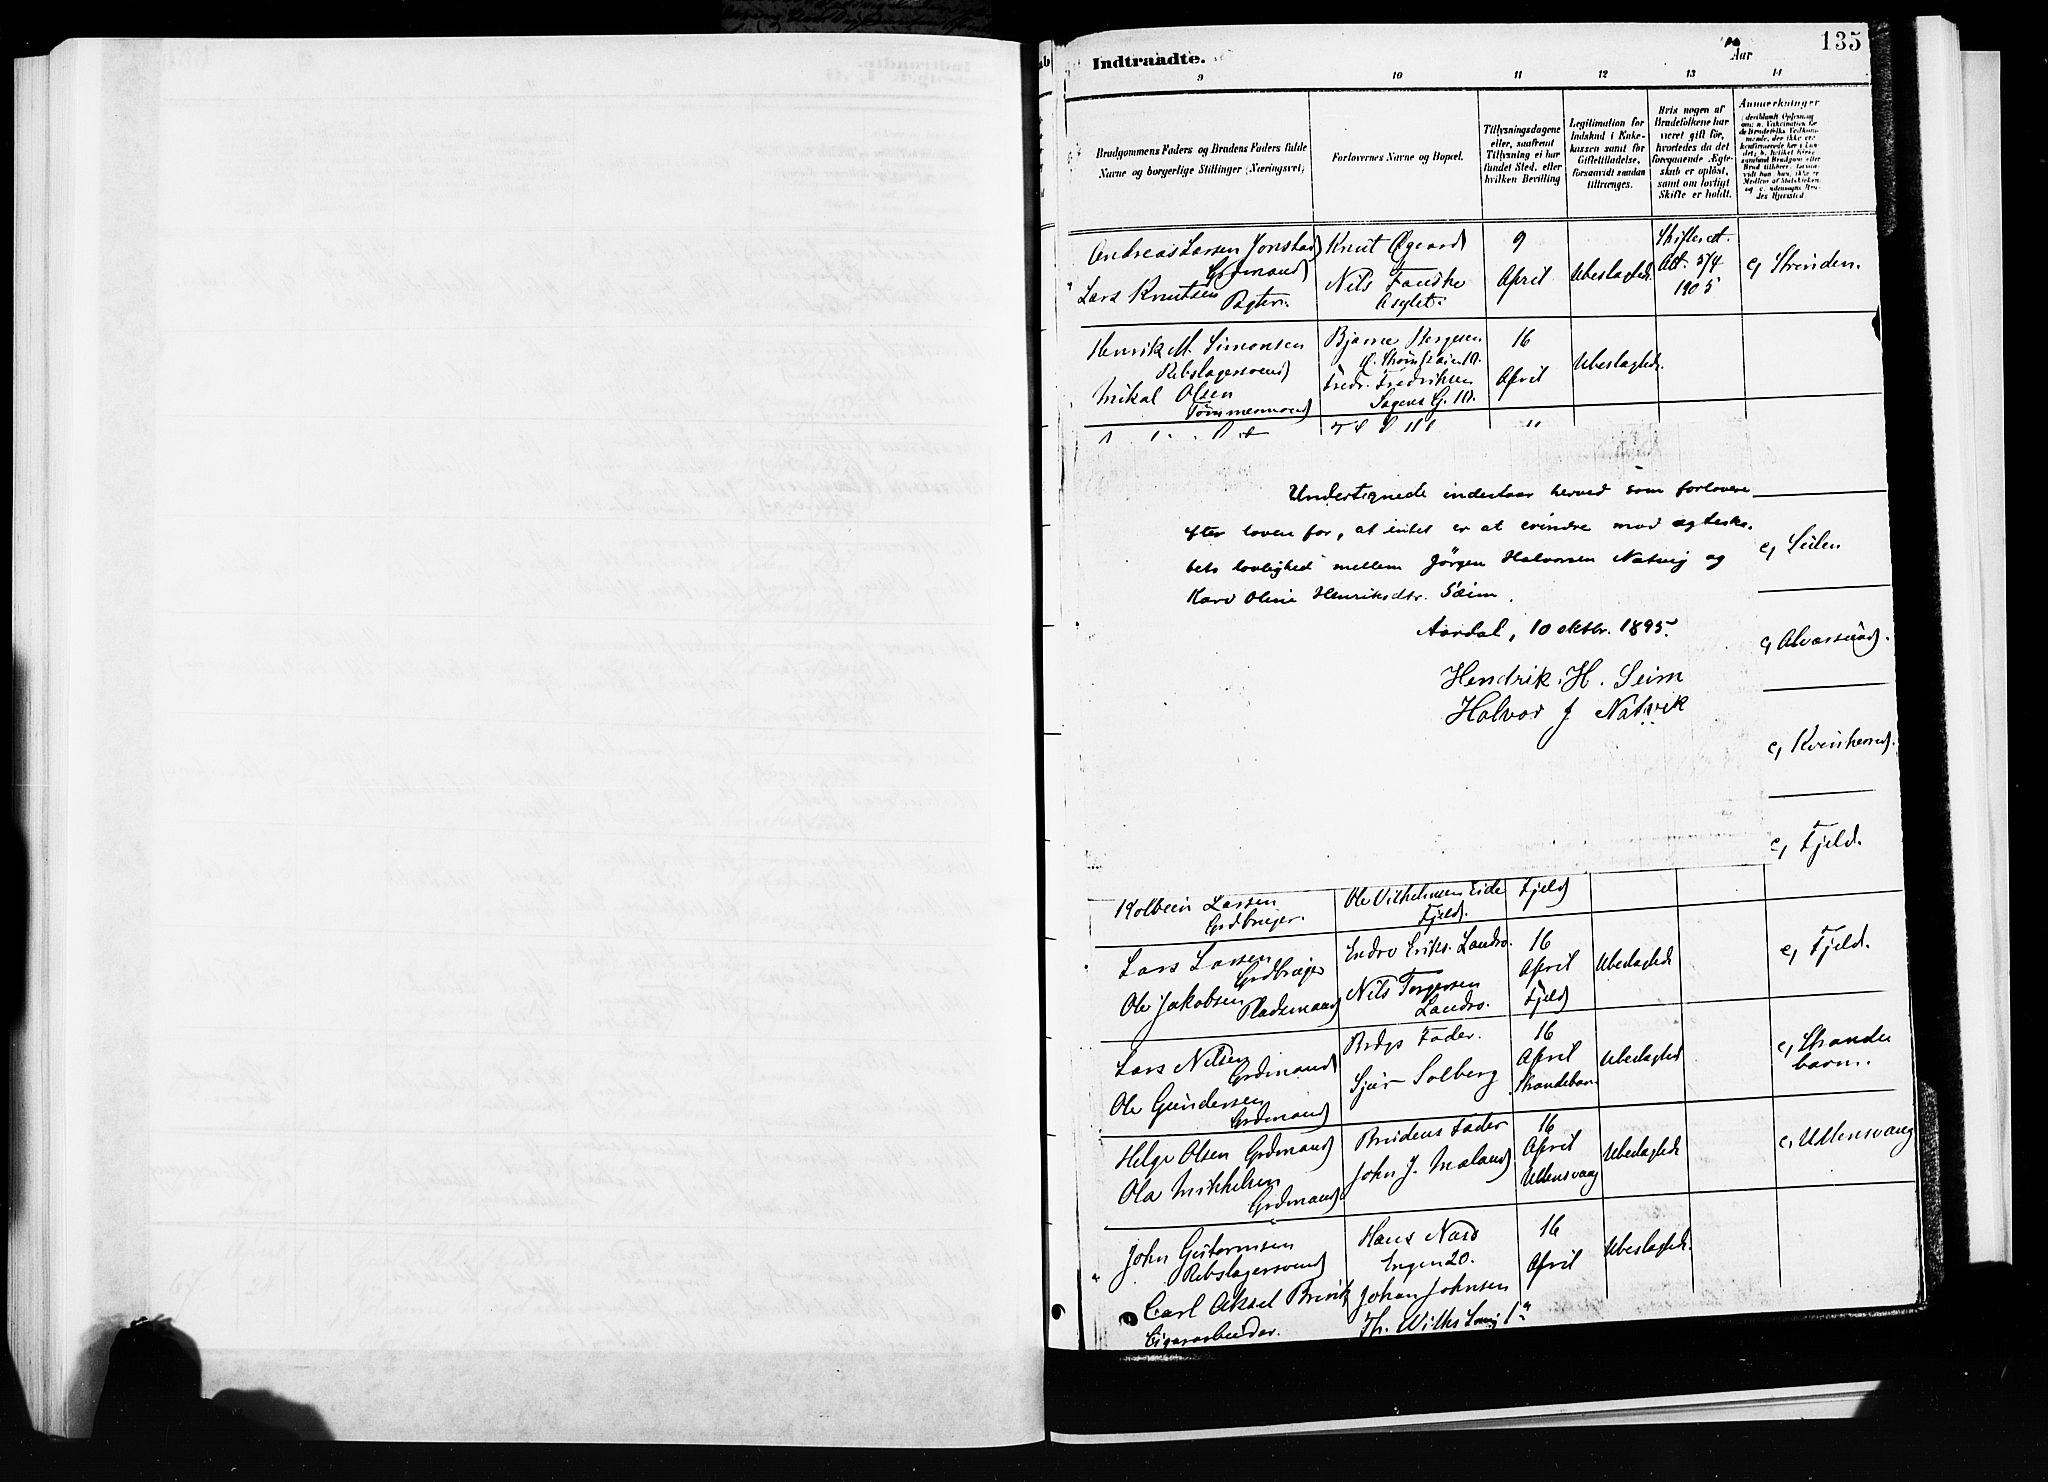 Indtraadte.
Aar
135
9
10
11
12
13
14
Brudgommens Faders og Brudens Faders fulde
Navne og borgerlige Stillinger (Næringsvei)
Forlovernes Navne og Bopæl.
Tillysningsdagene
eller, saafremt
Tillysning ei har
fundet Sted, efter
hvilken Bevilling
Legitimation for
Indskud i Enke-
kassen samt for
Giftetilladelse,
forsaavidt saadan
tiltrænges.
Hvis nogen af
Brudefolkene har
været gift før,
hvorledes da det
foregaaende Ægte-
skab er opløst,
samt om lovligt
Skifte er holdt.
Anmærkninger
Andreas Larsen Jonstad
Grdmand
Lars Knutsen
Pagter.
Knut Øgaard
Nils Fandke
Asylet.
9
April
Ubeslagtede
Skifteret.
Att. 3/4
1905
c, Strinden.
Henrik M. Simonsen
Rebslagersvend
Mikal Olsen
Tømmermand
Bjarne Børgesen
Fredr. Fredriksen
Sagens G. 10.
16
April
Ubeslagtede.
Undertegnede indestaar herved som forlovere
efter loven for, at intet er at erindre mod ægteska-
bets lovlighed mellem Jørgen Halvorsen Natvig og
Kari Oline Henriksdtr. Seim.
Aardal, 10 oktbr. 1895.
Hendrik. H. Seim
Halvor J Natvik
c, Seilen
c, Alversund.
c, Kvinherred.
c, Fjeld.
Kolbein Larsen
Grdbruger.
Ole Vilhelmsen Eide
Fjeld.
Fjeld
Lars Larsen
Grdbruger
Ole Jakobsen
Pladsmand
Endre Eriks. Landro.
Nils Torgersen
Landro.
16
April
Fjeld
Ubeslagtede
c, Fjeld.
Lars Nilsen
Grdmand
Ole Gundersen
Grdmand
Brdgs Fader.
Sjur Solberg
16
April
Strandebarm
Ubeslagtede
c, Strande
barm.
Helge Olsen Grdmand
Ola Mikkelsen
Grdmand
Brudens Fader
John J. Maland
16
April
Ullensvang
Ubeslagtede
c, Ullensvang
John Gustormsen
Rebslagersvend
Carl Aksel Brinik
Cigararbeider.
Hans Næss
Engen 20.
Johan Johnsen
Th. Wilhs Smug 1a
16
April
Ubeslagtede.